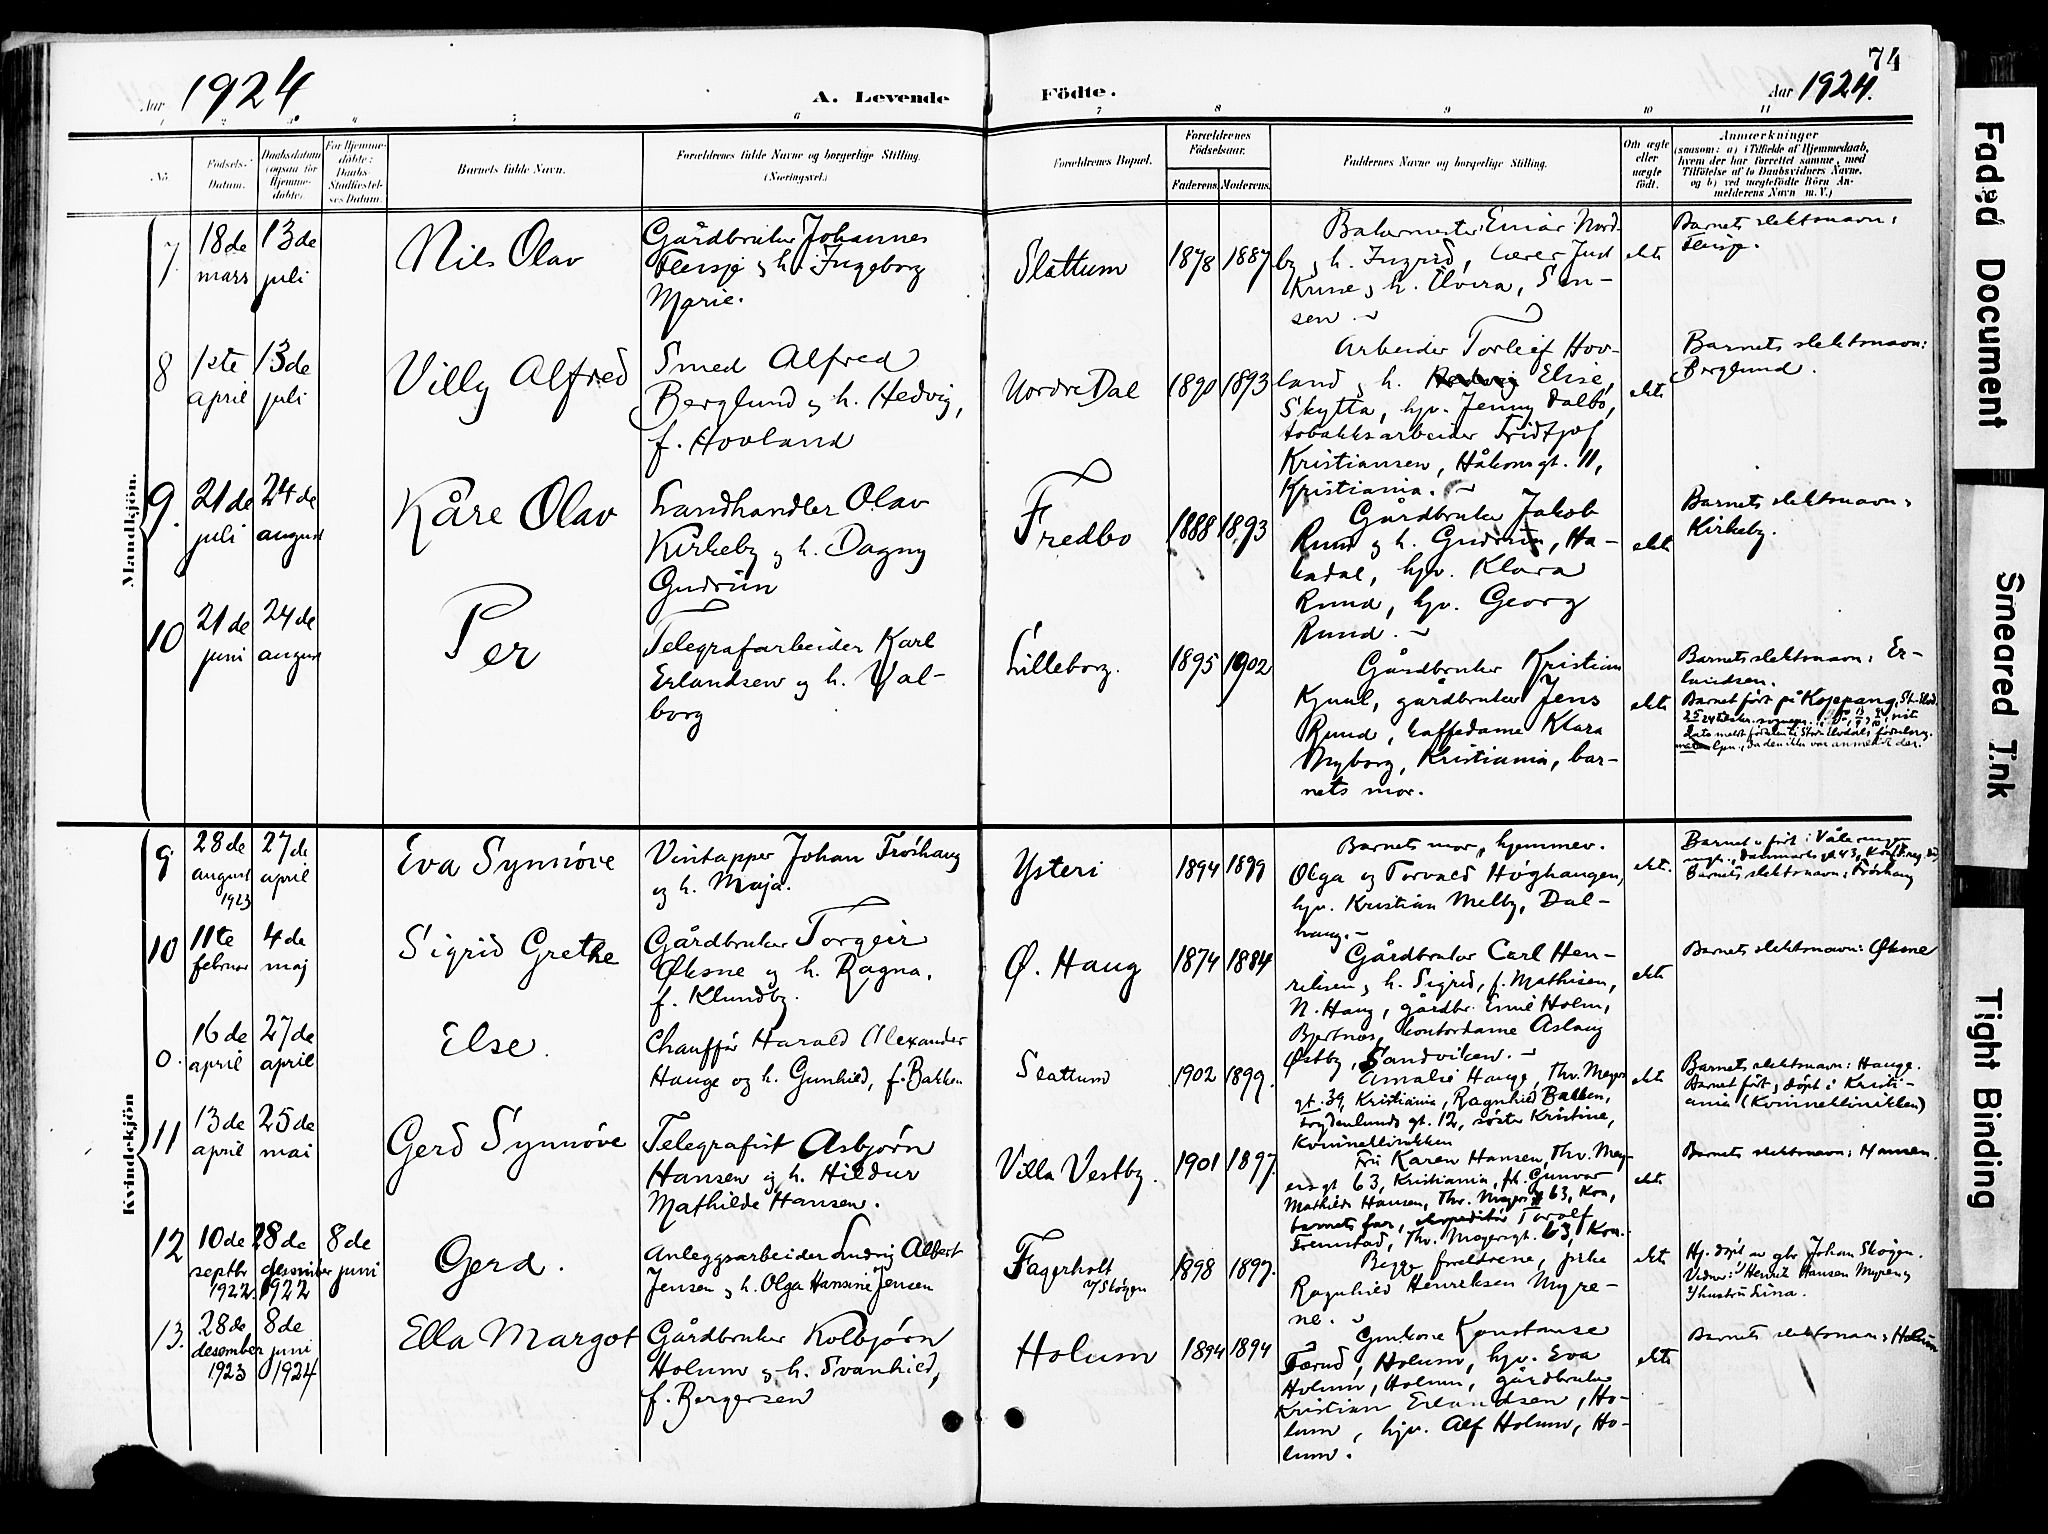 74
Aar 1924
A. Levende Födte.
Aar 1924.
1 2 3 4 5 6 7 8 9 10 11
No.
Födsels-
Datum.
Daabsdatum
(ogsaa for
Hjemme-
döbte).
For Hjemme-
döbte:
Daabs-
Stadfæstel-
ses Datum.
Barnets fulde Navn.
Forældrenes fulde Navne og borgerlige Stilling.
(Næringsvei.)
Forældrenes Bopæl.
Forældrenes
Födselsaar.
Faderens. Moderens.
Faddernes Navne og borgerlige Stilling.
Om ægte
eller
uægte
født.
Anmærkninger
(saasom: a) i Tilfælde af Hjemmedaab,
hvem der har forrettet samme, med
Tilföielse af to Daabsvidners Navne.
og b) ved uægtefödte Börn An-
melderens Navn m. V.)
Mandkjön.
7.
18de
mars
13de
juli
Nils Olav
Gårdbruker Johannes
Flensje og h. Ingeborg
Marie.
Slattum
1878
1887
Bakermester Einar Nord-
by og h. Ingrid, lærer Just
Kruse og h. Elvira,
sen.
ekte
Barnets slektsnavn:
Flensje.
8
1ste
april
13de
juli
Villy Alfred
Smed Alfred
Berglund og h. Hedvig,
f. Hovland
Nordre Dal
1890
1893
Arbeider Torleif Hov-
land og h. Elise,
Skytta, hpv. Jenny Dalbo,
tobakksarbeider Fridtjof
Kristiansen, Håkonsgt. 11,
Kristiania.
ekte
Barnets slektsnavn:
Berglund.
9.
21de
juli
24de
august
Kåre Olav
Landhandler Olav
Kirkeby og h. Dagny
Gudrun
Fredbo
1888
1893
Gårdbruker Jakob
Rund og h. Gudrun, Ha-
kadal, hpv. Klara
Rund, hpv. Georg
Rund.
ekte
Barnets slektsnavn:
Kirkeby.
10
21de
juni
24de
august
Per
Telegrafarbeider Karl
Erlandsen og h. Val-
borg
Lilleborg.
1895
1902
Gårdbruker Kristian
Kjuul, gårdbruker Jens
Rund, kaffedame Klara
Myborg, Kristiania, bar-
nets mor.
ekte
Barnets slektsnavn: Er-
landsen.
Barnet født på Koppang, St.
Kvindekjön
9
28de
august
1923
27de
april
Eva Synnøve
Vintapper Johan Frøshaug
og h. Maja.
Ysteri
1894
1899
Barnets mor, hjemmev.
Olga og Torvald Høghaugen,
hpv. Kristian Melby, Dal-
haug.
ekte.
Barnet født i Vålerengen
mgt., Danmarks gt 43,
Barnets slektsnavn: Frøshaug
10
11te
februar
4de
maj
Sigrid Grethe
Gårdbruker Torgeir
Øksne og h. Ragna,
f. Klundby.
Ø. Haug
1874
1884
Gårdbruker Carl Hen-
riksen og h. Sigrid, f. Mathisen,
N. Haug, gårdbr. Emil Holm,
Bjertnes, kontordame Aslaug
Østby, Sandviken.
ekte
Barnets slektsnavn: Øksne
0.
16de
april
27de
april
Else.
Chauffør Harald Alexander
Hauge og h. Gunhild, f. Bakken
Slattum
1902
1899.
Amalie Hauge, Thv. Meyers
gt. 39, Kristiania, Ragnhild Bakken,
Frydenlunds gt. 12, søster Kristine,
Kvinneklinikken
ekte
Barnets slektsnavn: Hauge.
Barnet født og døpt i Kristi-
ania (Kvinneklinikken)
11
13de
april
25de
mai
Gerd Synnøve
Telegrafist Asbjørn
Hansen og h. Hildur
Mathilde Hansen.
Villa Vestby.
1901
1897
Fru Karen Hansen, Thv. Mey-
ers gt 63, Kristiania, frk. Gunvor
Mathilde Hansen, Thv. Meyers gt 63, Kra,
barnets far, ekspeditør Toralf
Fremstad, Thv. Meyersgt. 63, Kra.
ekte
Barnets slektsnavn: Hansen.
12
10de
septbr
1922.
28de
desember
1922
8de
juni
Gerd.
Anleggsarbeider Ludvig Albert
Jensen og h. Olga Hansine Jensen
Fagerholt
v/Skøyen
1898
1897.
Begge foreldrene, pike
Ragnhild Henriksen Myre-
ne.
ekte
Hj. døpt av gbr Johan Skøyen.
Vidner: Henrik Hansen Myreng
og hustru Lina.
13.
28de
desember
1923
8de
juni
1924
Ella Margot
Gårdbruker Kolbjørn
Holum og h. Svanhild,
f. Børgersen
Holum
1894
1894
Gmkone Konstanse
Færud, Holum, hpv. Eva
Holum, Holum, gårdbruker
Kristian Erlandsen, Ho-
lum, hpv. Alf Holum, Ho-
lum.
ekte
Barnets slektsnavn: Holum
Faded Document
Smeared Ink
Tight Binding